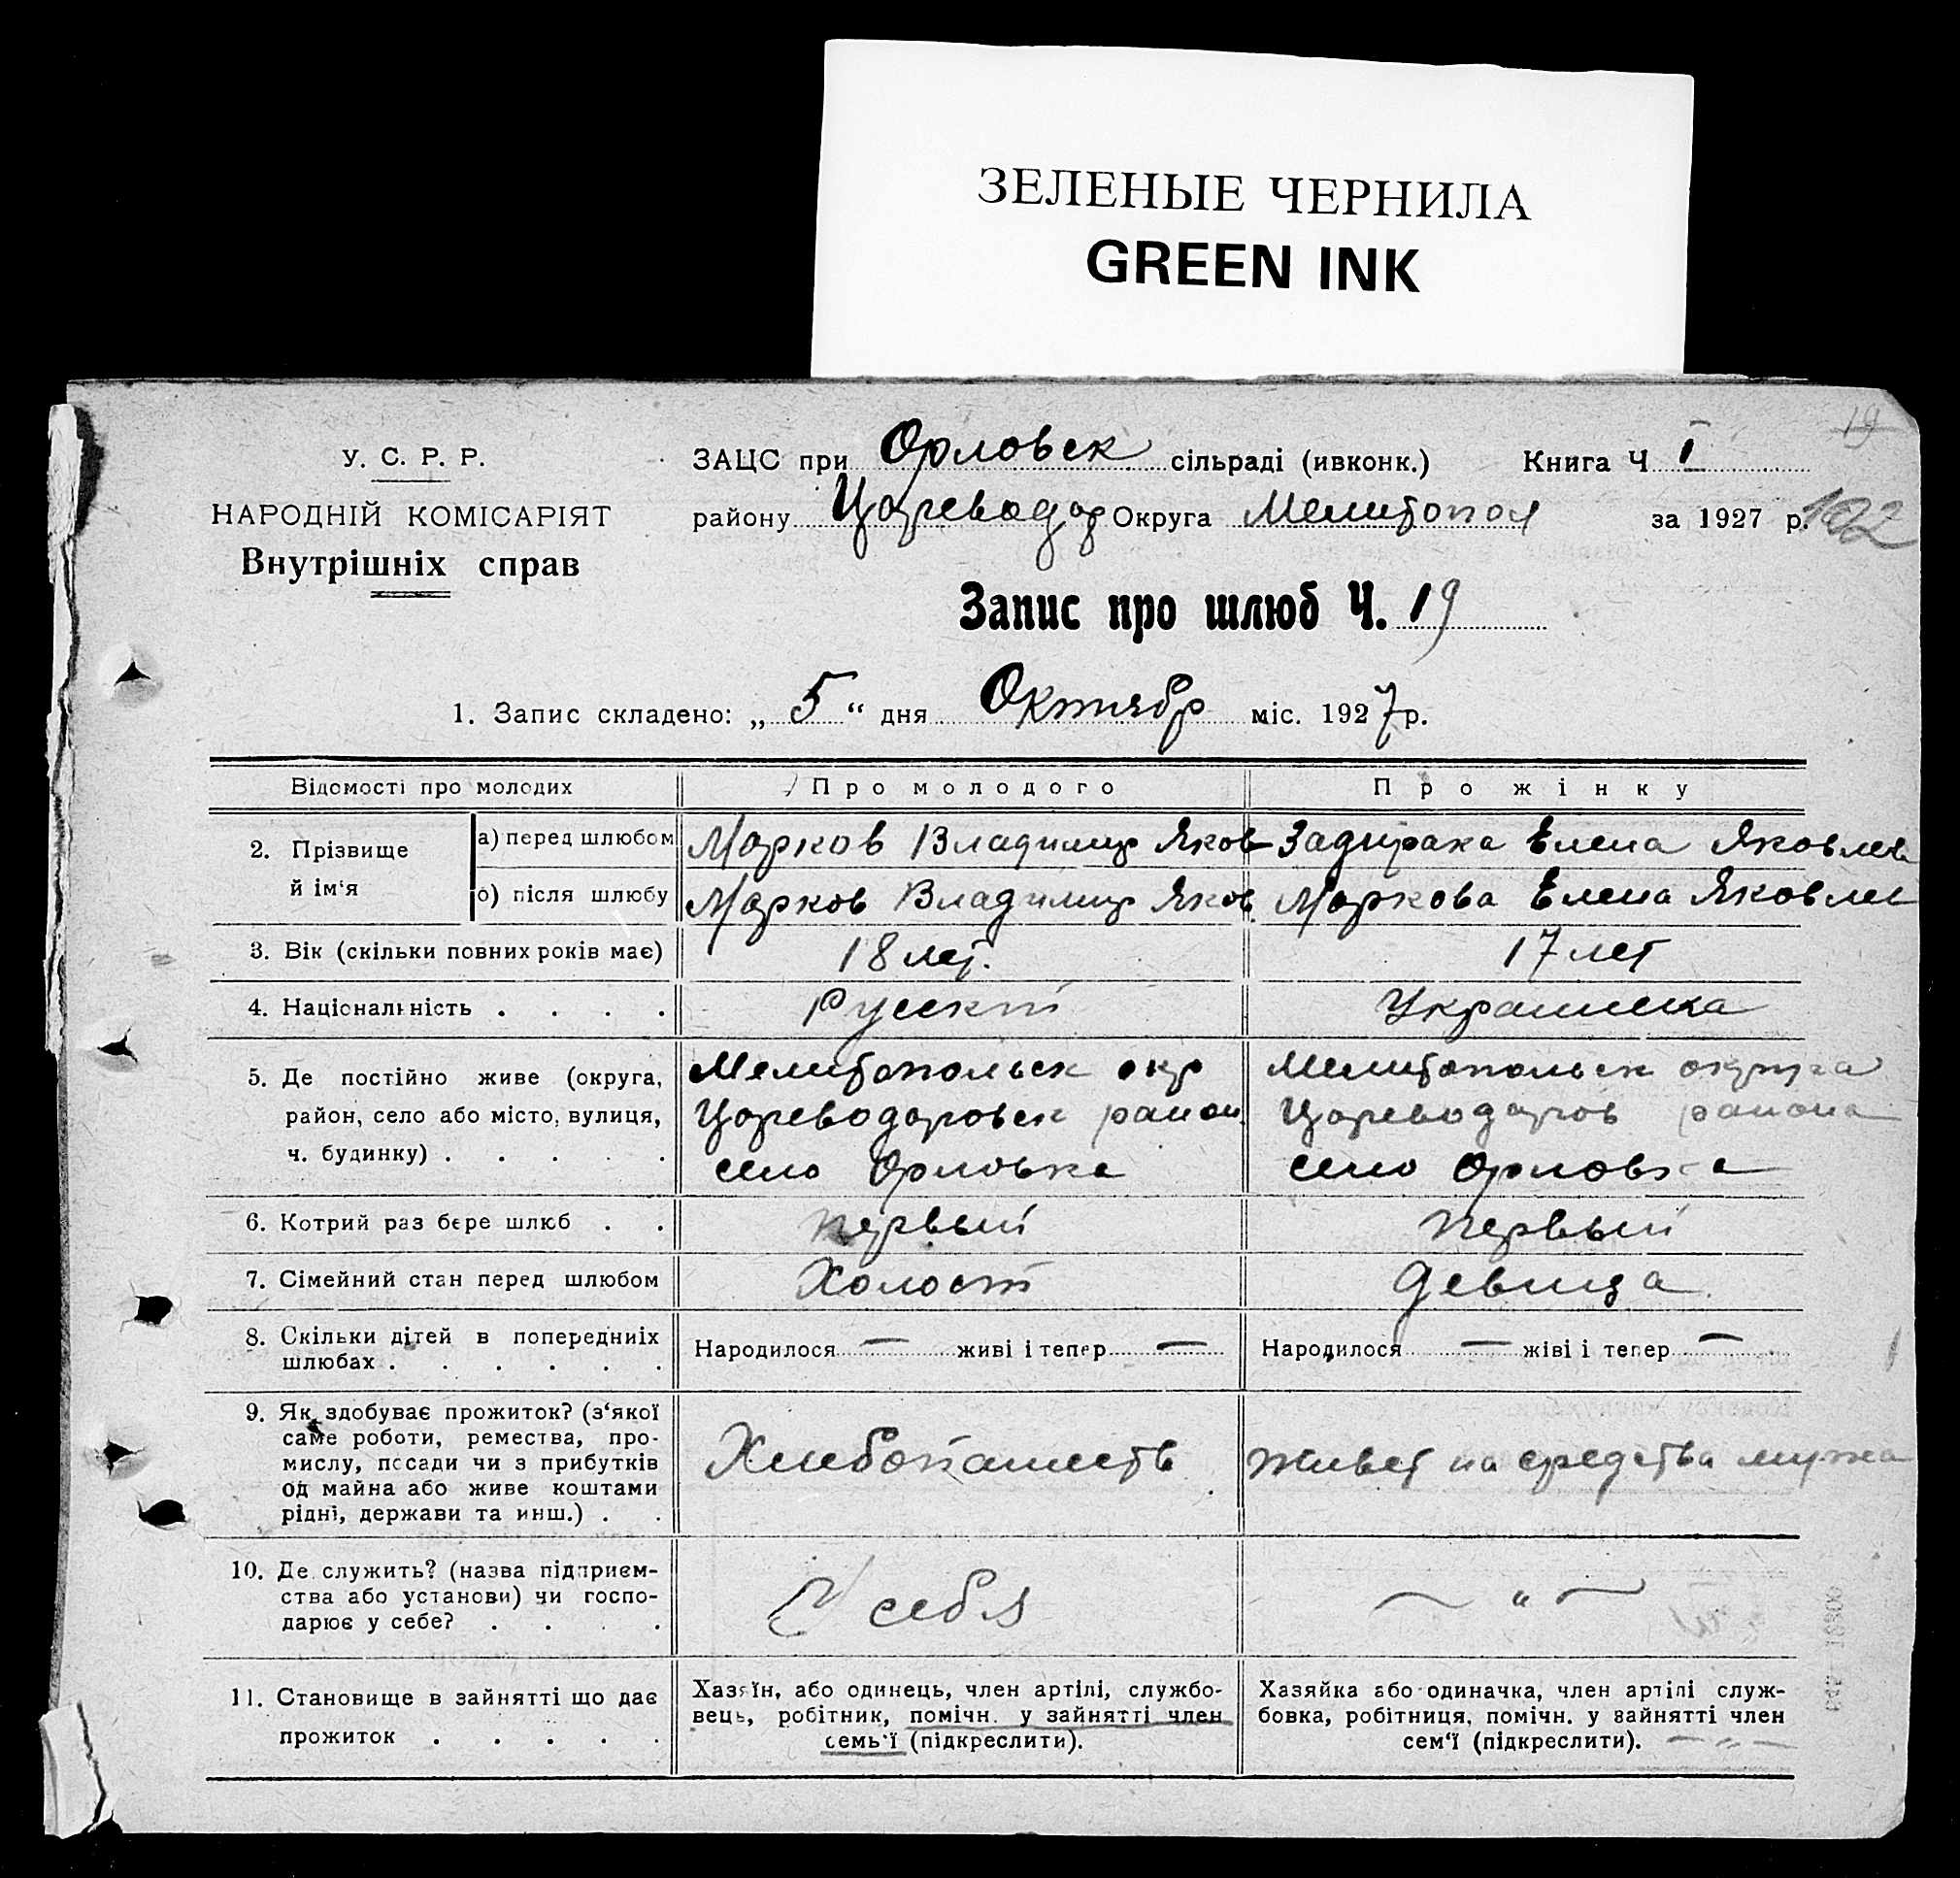 ЗЕЛЕНЫЕ ЧЕРНИЛА
GREEN INK
19
У. С. Р. Р.
НАРОДНІЙ КОМІСАРІЯТ
Внутрішніх справ
ЗАЦС при Орловск сільраді (ивконк.) Книга Ч I
району Цареводар Округа Мелитопол за 1927 р. 102
Запис про шлюб Ч. 19
1. Запис складено: „ 5 “ дня Октябр міс. 1927 р.
Відомості про молодих
Про молодого
Про жінку
2. Прізвище й ім‘я
а) перед шлюбом
Марков Владимир Яков
Задирака Елена Яковлев
б) після шлюбу
Марков Владимир Яков
Маркова Елена Яковлев
3. Вік (скільки повних років має)
18 лет.
17 лет
4. Національність . . . .
Русский
Украинска
5. Де постійно живе (округа,
район, село або місто, вулиця,
ч. будинку) . . . . .
Мелитопольск окр
Цареводаровск район
село Орловка
Мелитопольск округа
Цареводаров района
село Орловка
6. Котрий раз бере шлюб . .
первый
первый
7. Сімейний стан перед шлюбом
Холост
Девица
8. Скільки дітей в попередниіх
шлюбах . . . . . .
Народилося — живі і тепер —
Народилося — жіві і тепер —
9. Як здобуває прожиток? (з‘якої
саме роботи, ремества, про-
мислу, посади чи з прибутків
од майна або живе коштами
рідні, держави та инш.) . .
Хлебопашеств
Живет на средства мужа
10. Де служить? (назва підприєм-
ства або установи) чи госпо-
дарює у себе? . . . .
У себя
— “ —
11. Становище в зайнятті що дає
прожиток . . . . .
Хазяїн, або одинець, член артілі, службо-
вець, робітник, помічн. у зайнятті член
семь‘ї (підкреслити).
Хазяйка або одиначка, член артілі служ-
бовка, робітниця, помічн. у зайнятті член
сем‘ї (підкреслити). — “ —